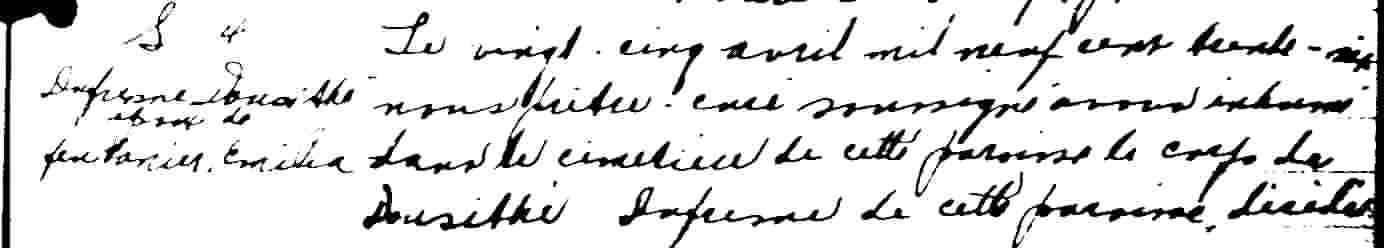 S 4
Dufresne Dousithé
époux de
feu Papier, Emilia
Le vingt-cinq avril mil neuf cent trente-six
nous prêtre-curé soussigné avons inhumé
dans le cimetière de cette paroisse le corps de
Dousithé Dufresne de cette paroisse, décédé